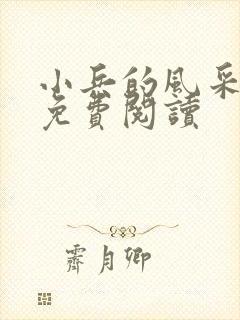 小兵的風采
免費閱讀
霽月卿